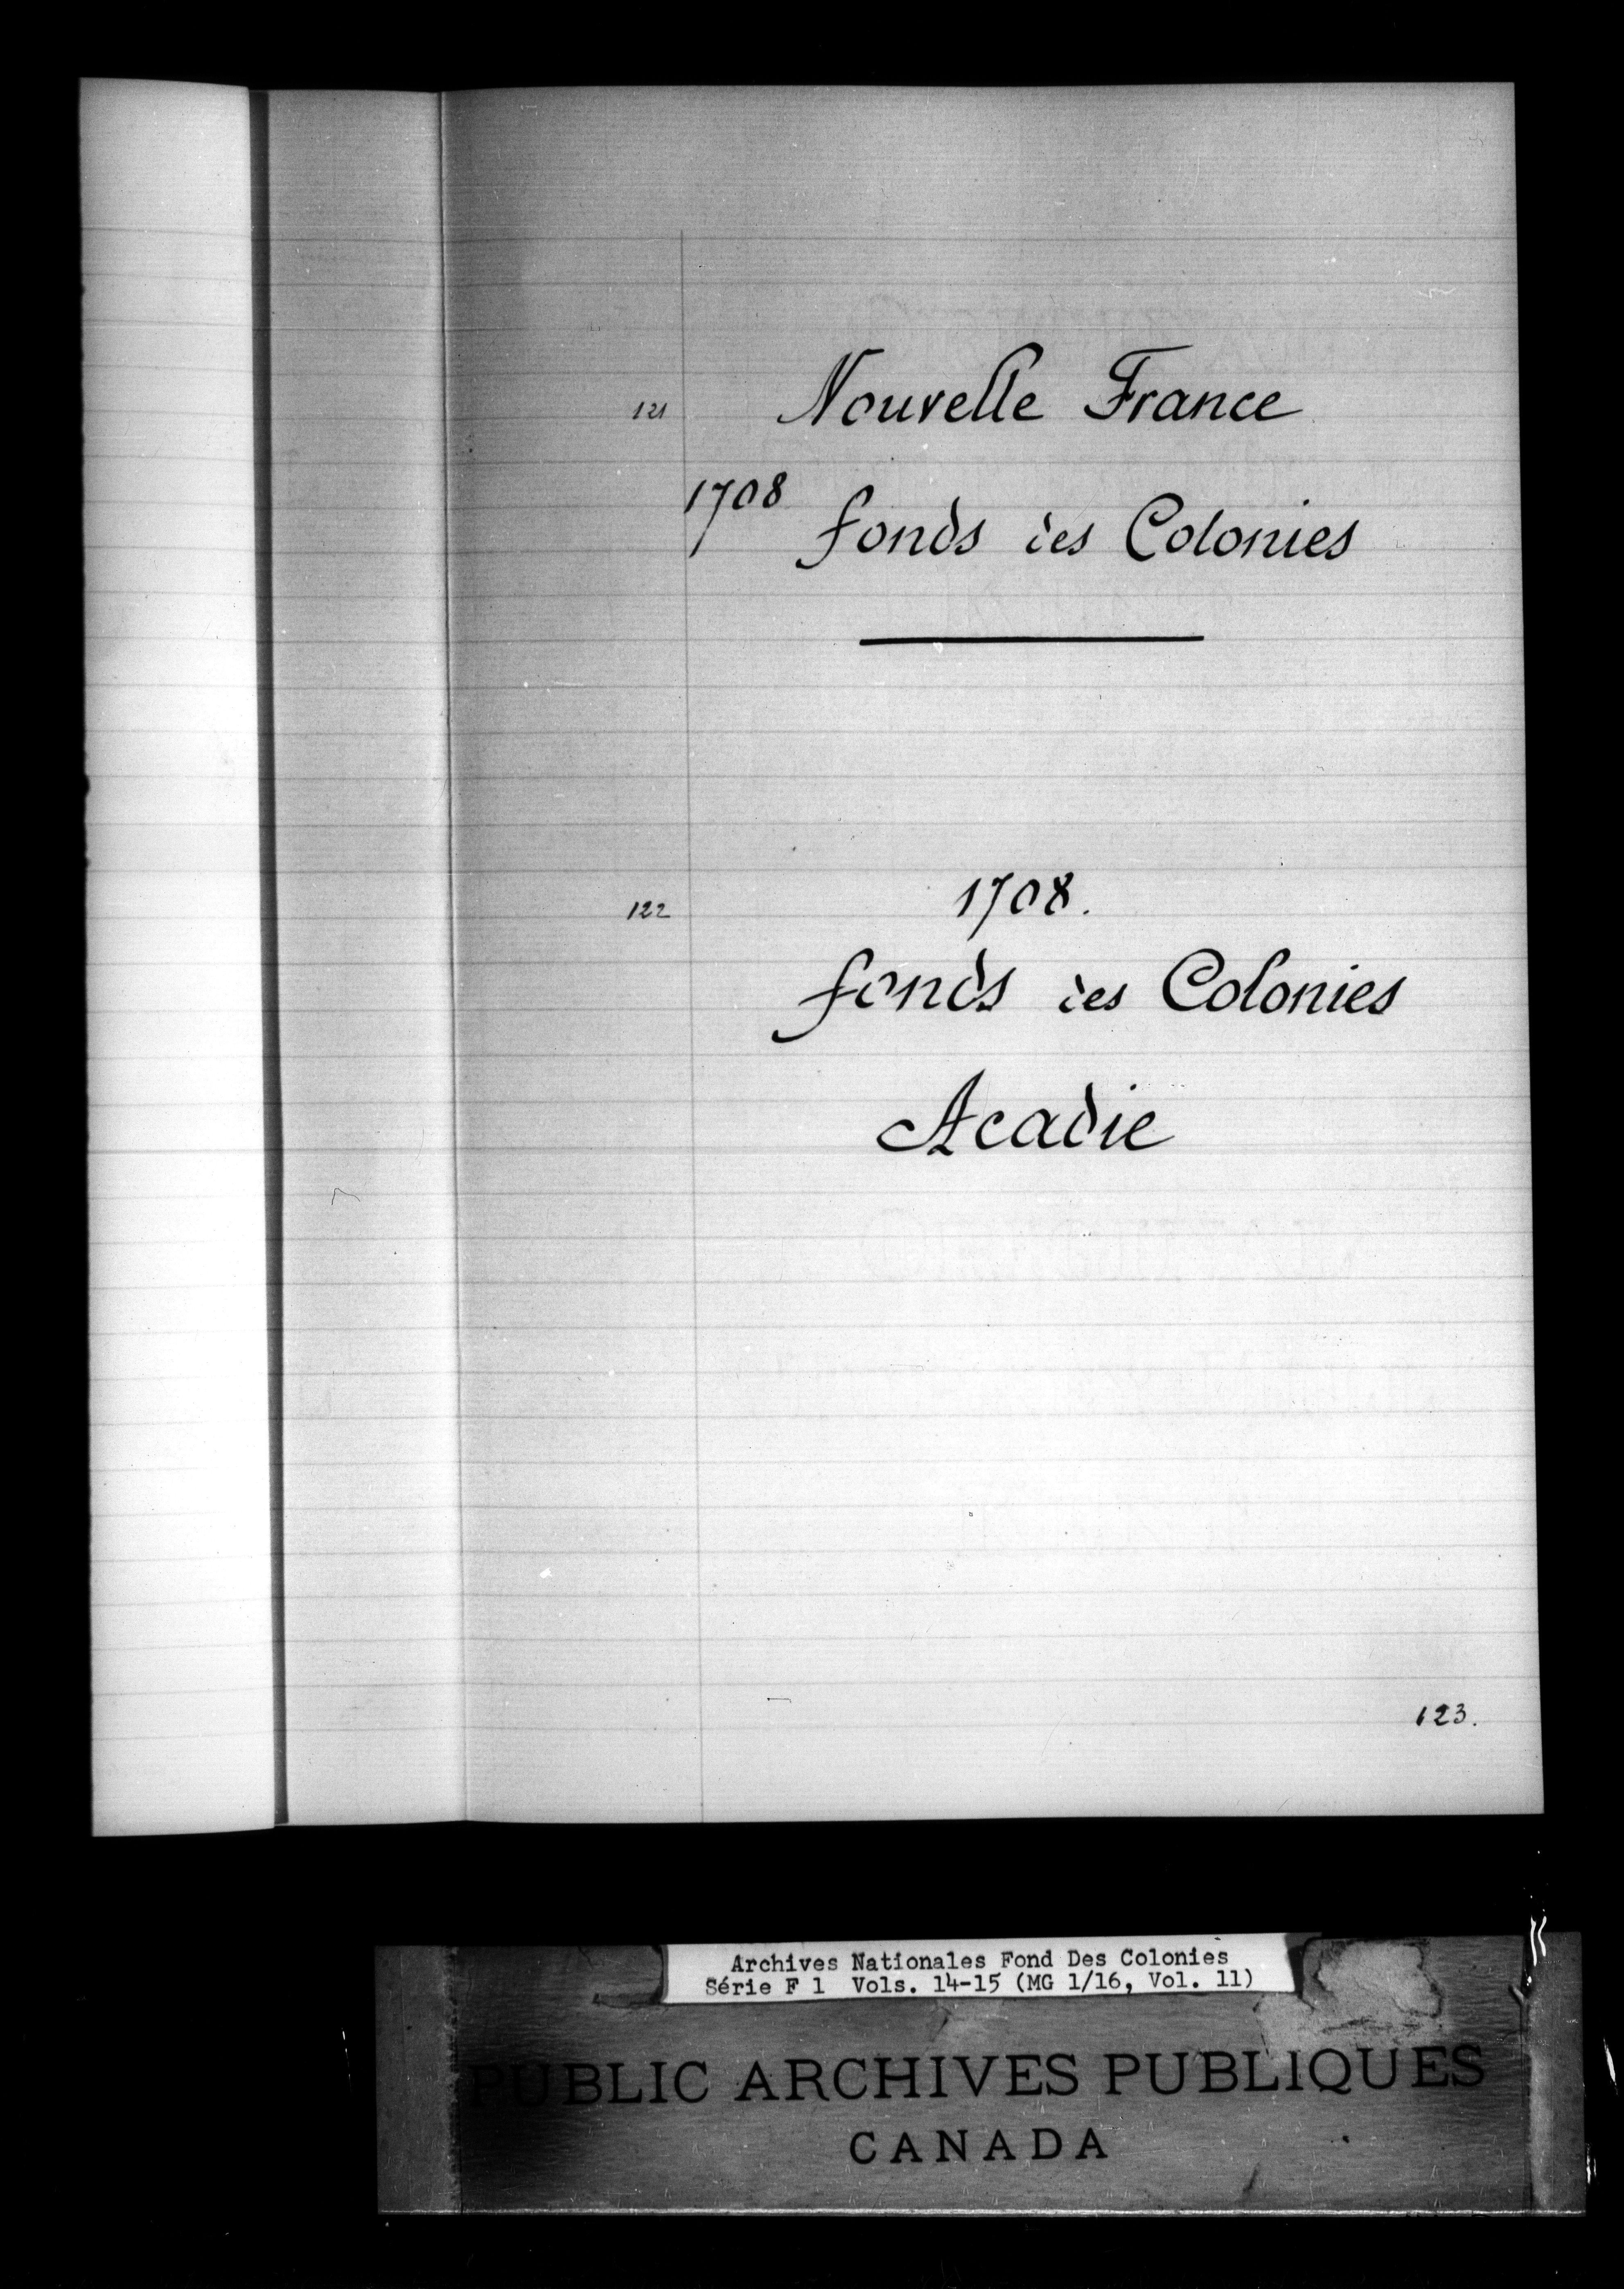 121 Nouvelle France
1708
fonds des Colonies
122 1708.
fonds des Colonies
Acadie
123.
Archives Nationales Fond Des Colonies
Série F 1 Vols. 14-15 (MG 1/16, Vol. 11)
PUBLIC ARCHIVES PUBLIQUES
CANADA